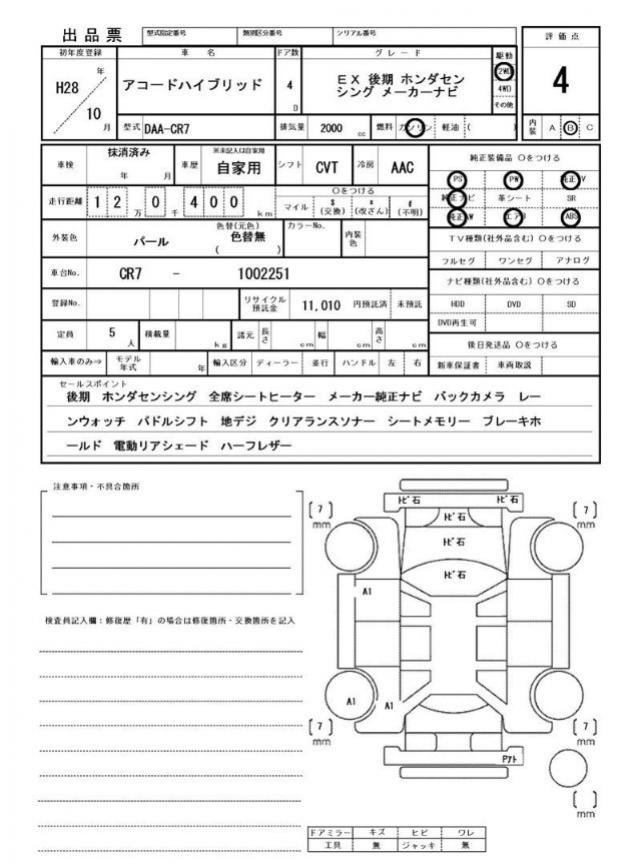 出品票 型式指定番号 類別区分番号 シリアル番号
初年度登録 車名 ドア数 グレード 駆動 評価点
H28 年 アコードハイブリッド 4 D EX 後期 ホンダセンシング メーカーナビ 2WD 4WD その他 4
10 月 型式 DAA-CR7 排気量 2000 cc 燃料 ガソリン 軽油 ( ) 内装 A B C
車検 抹消済み 年 月 車歴 ※未記入は自家用 自家用 シフト CVT 冷房 AAC
純正装備品 ○をつける
PS PW 純正TV
純正ナビ 革シート SR
純正AW エアB ABS
走行距離 1 2 万 0 千 4 0 0 km ○をつける マイル $ (交換) * (改ざん) # (不明)
外装色 パール 色替(元色) 色替無 ( ) カラーNo. 内装色
TV種類(社外品含む) ○をつける
フルセグ ワンセグ アナログ
車台No. CR7 - 1002251
ナビ種類(社外品含む) ○をつける
HDD DVD SD
DVD再生可
登録No. リサイクル預託金 11,010 円預託済 未預託
定員 5 人 積載量 kg 諸元 長さ cm 幅 cm 高さ cm
後日発送品 ○をつける
新車保証書 車両取説
輸入車のみ⇒ モデル年式 年 輸入区分 ディーラー 並行 ハンドル 左 右
セールスポイント
後期 ホンダセンシング 全席シートヒーター メーカー純正ナビ バックカメラ レー
ンウォッチ パドルシフト 地デジ クリアランスソナー シートメモリー ブレーキホ
ールド 電動リアシェード ハーフレザー
注意事項・不具合箇所
検査員記入欄:修復歴「有」の場合は修復箇所・交換箇所を記入
ﾄﾋﾞ石 ﾄﾋﾞ石
[7] mm ﾄﾋﾞ石 [7] mm
ﾄﾋﾞ石
ﾄﾋﾞ石
A1
A1 A1
[7] mm [7] mm
[ ] mm
ドアミラー キズ ヒビ ワレ
工具 無 ジャッキ 無